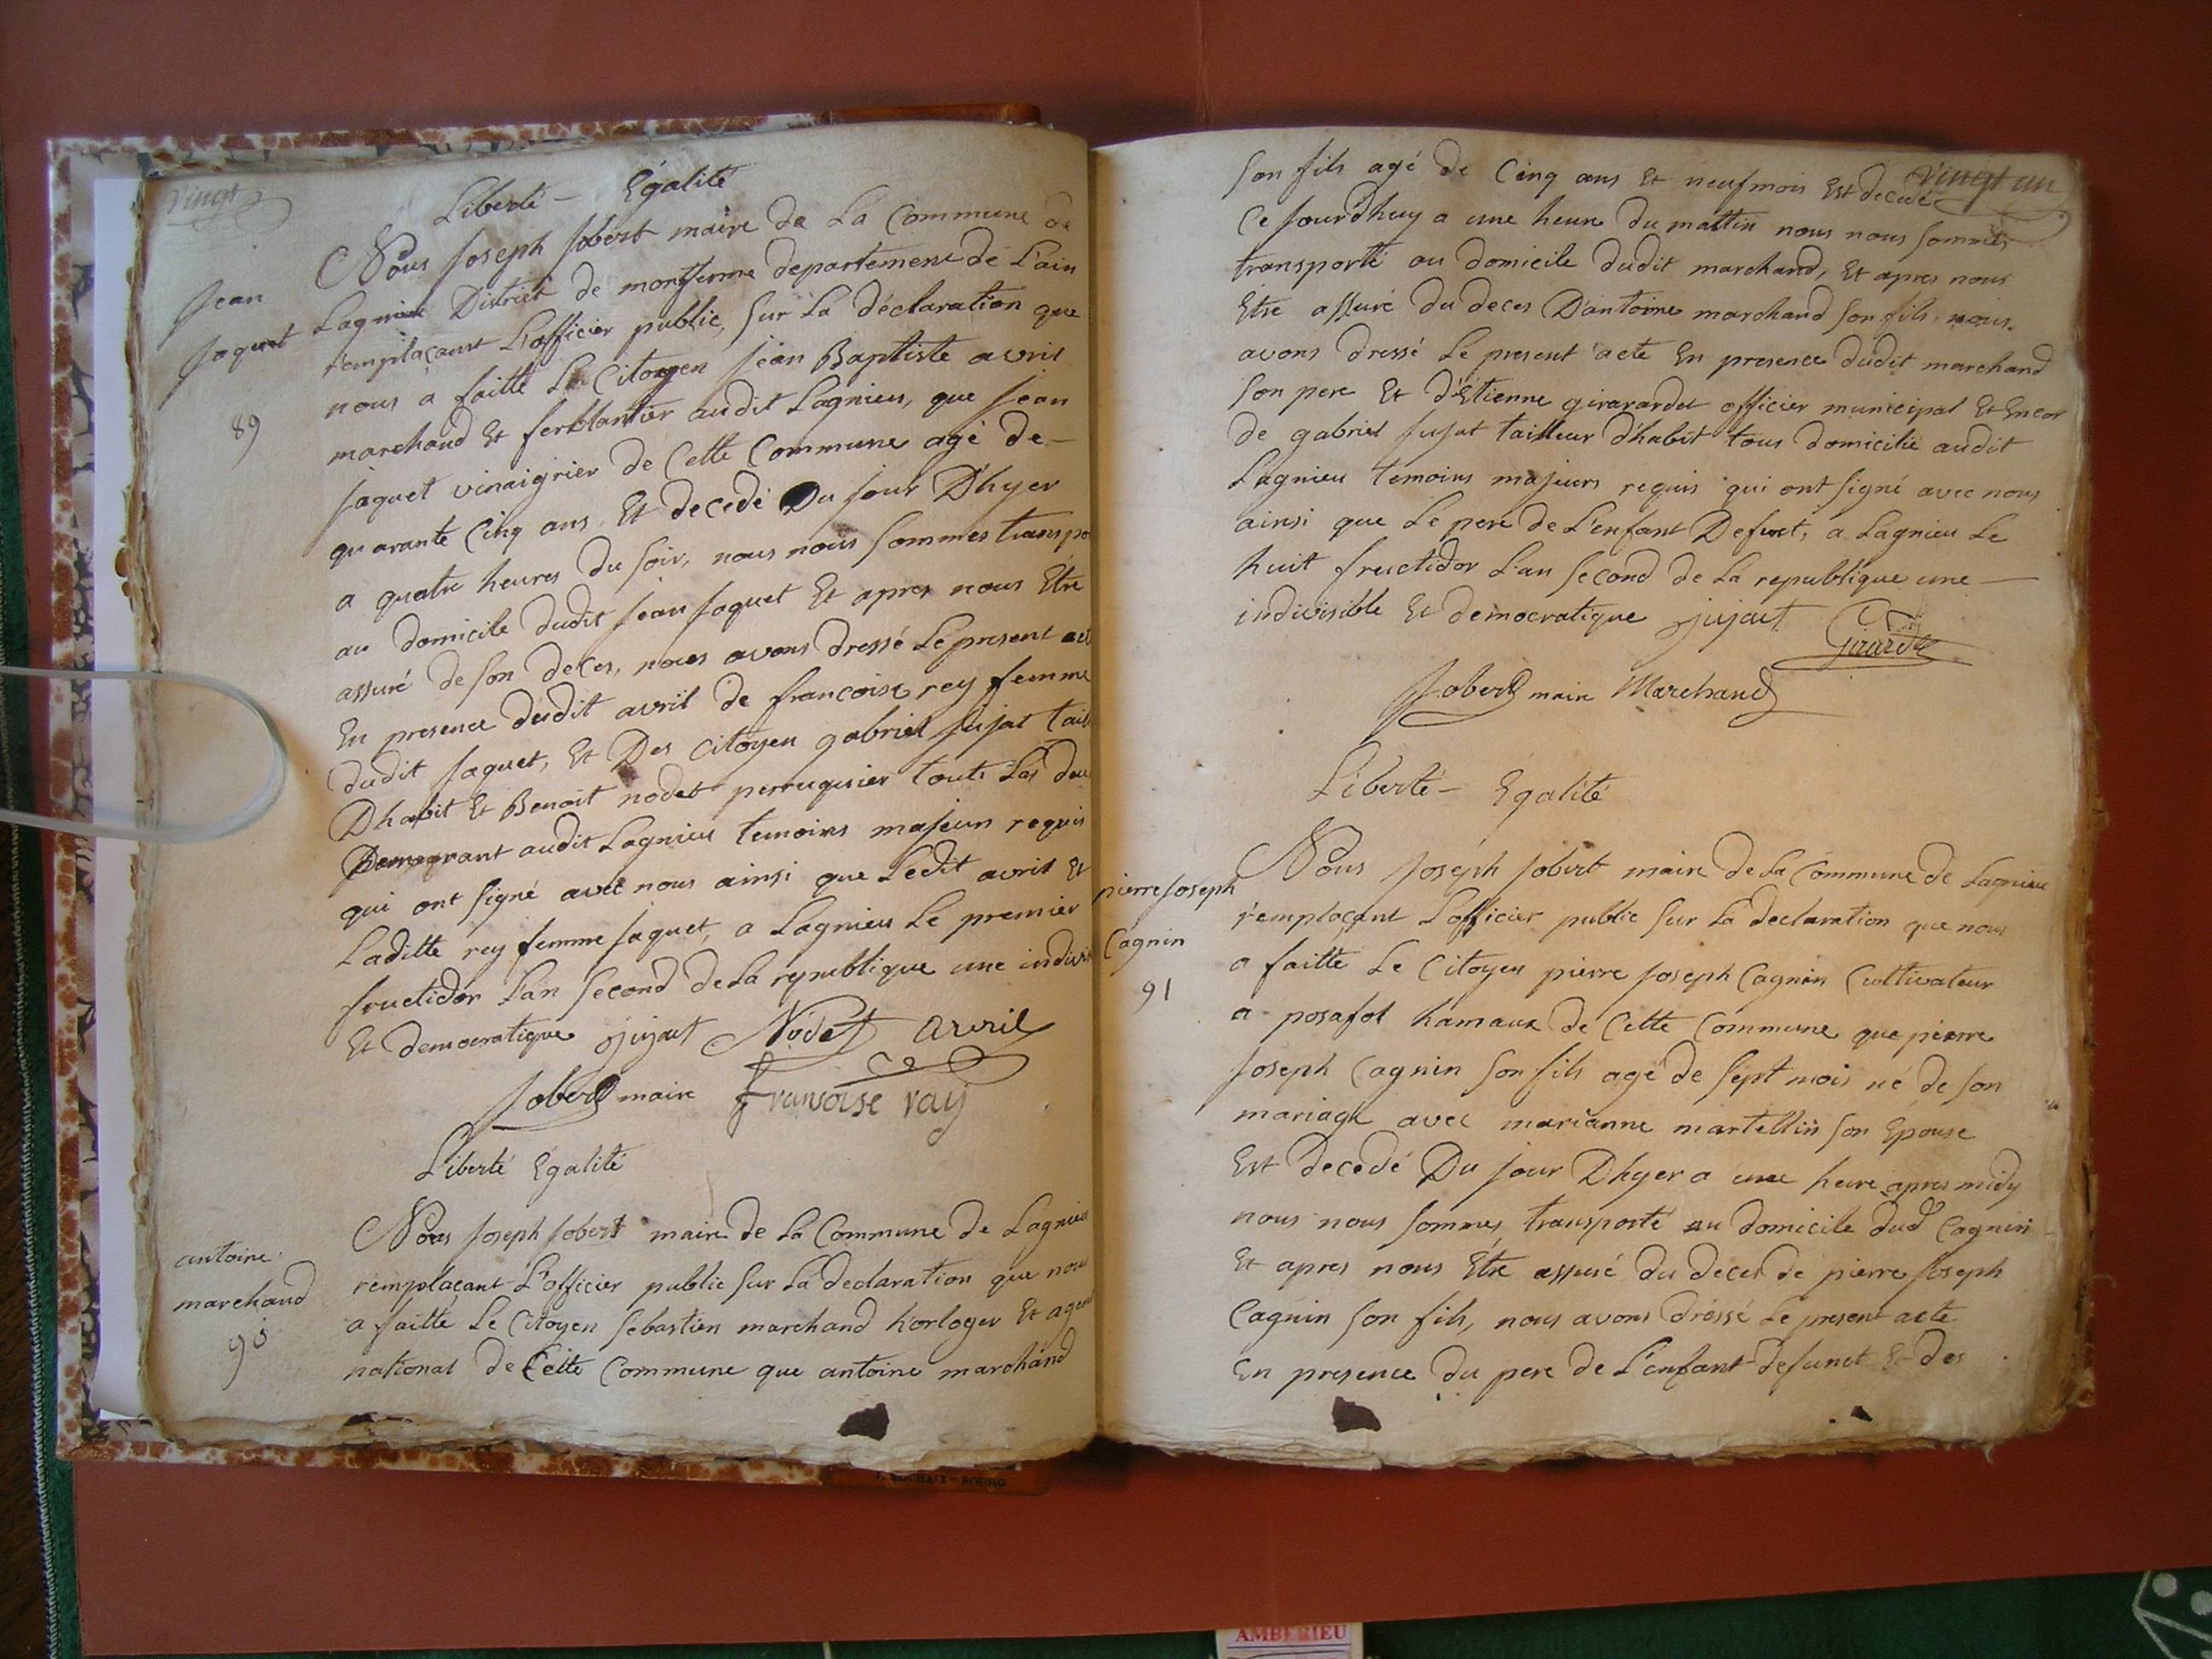 vingt
Liberté - Egalité
Nous Joseph Jobert maire de La Commune de
Jean
Jaquet
89
Lagnieu District de montferme departement de L'ain
remplaçant L'officier public, sur La déclaration que
nous a faitte Le Citoyen jean Baptiste avril
marchand Et ferblantier audit Lagnieu, que jean
jaquet vinaigrier de Cette Commune agé de -
quarante Cinq ans Et decedé Du jour D'hyer
a quatre heures du soir, nous nous sommes transpo
au domicile dudit jean jaquet Et apres nous Etre
assuré de son deces, nous avons dressé Le present act
En presence dudit avril de francoise rey femme
dudit jaquet, Et Des Citoyen gabriel jujat tail
Dhabit Et Benoit nodet perruquier touts Les deu
Demeurant audit Lagnieu temoins majeurs requis
qui ont signé avec nous ainsi que Ledit avril Et
Laditte rey femme jaquet, a Lagnieu Le premier
fructidor L'an second de La republique une indivis
Et democratique jujaut Nodet avril
Jobert maire fransoise ray
Liberté Egalité
antoine
marchand
90
Nous Joseph Jobert maire de La Commune de Lagnieu
remplaçant L'officier public sur La declaration que nous
a faitte Le Citoyen sebastien marchand horloger Et agent
national de Cette Commune que antoine marchand
vingt un
son fils agé de Cinq ans Et neuf mois Est decedé
Ce jourdhuy a une heure du mattin nous nous sommes
transporté au domicile dudit marchand, Et apres nous
Etre assuré du deces D'antoine marchand son fils, nous
avons dressé Le present acte En presence dudit marchand
son pere Et d'Etienne girarardet officier municipal Et Encor
de gabriel jujat tailleur d'habit tous domicilié audit
Lagnieu temoins majeurs requis qui ont signé avec nous
ainsi que Le pere de L'enfant Defunt, a Lagnieu Le
huit fructidor L'an second de La republique une -
indivisible Et democratique jujaut Girardet
Jobert maire Marchand
Liberté - Egalité
pierre joseph
Cagnin
91
Nous Joseph Jobert maire de La Commune de Lagnieu
remplaçant L'officier public sur La declaration que nous
a faitte Le Citoyen pierre joseph Cagnin Cultivateur
a posafol hamaux de Cette Commune que pierre
joseph Cagnin son fils agé de sept mois né de son
mariage avec marianne martellin son Epouse
Est decedé Du jour D'hyer a une heure apres midy
nous nous sommes transporté au domicile dud Cagnin
Et apres nous Etre assuré du deces de pierre joseph
Cagnin son fils, nous avons dréssé Le present acte
En presence du pere de L'enfant defunct Et des
AMBERIEU